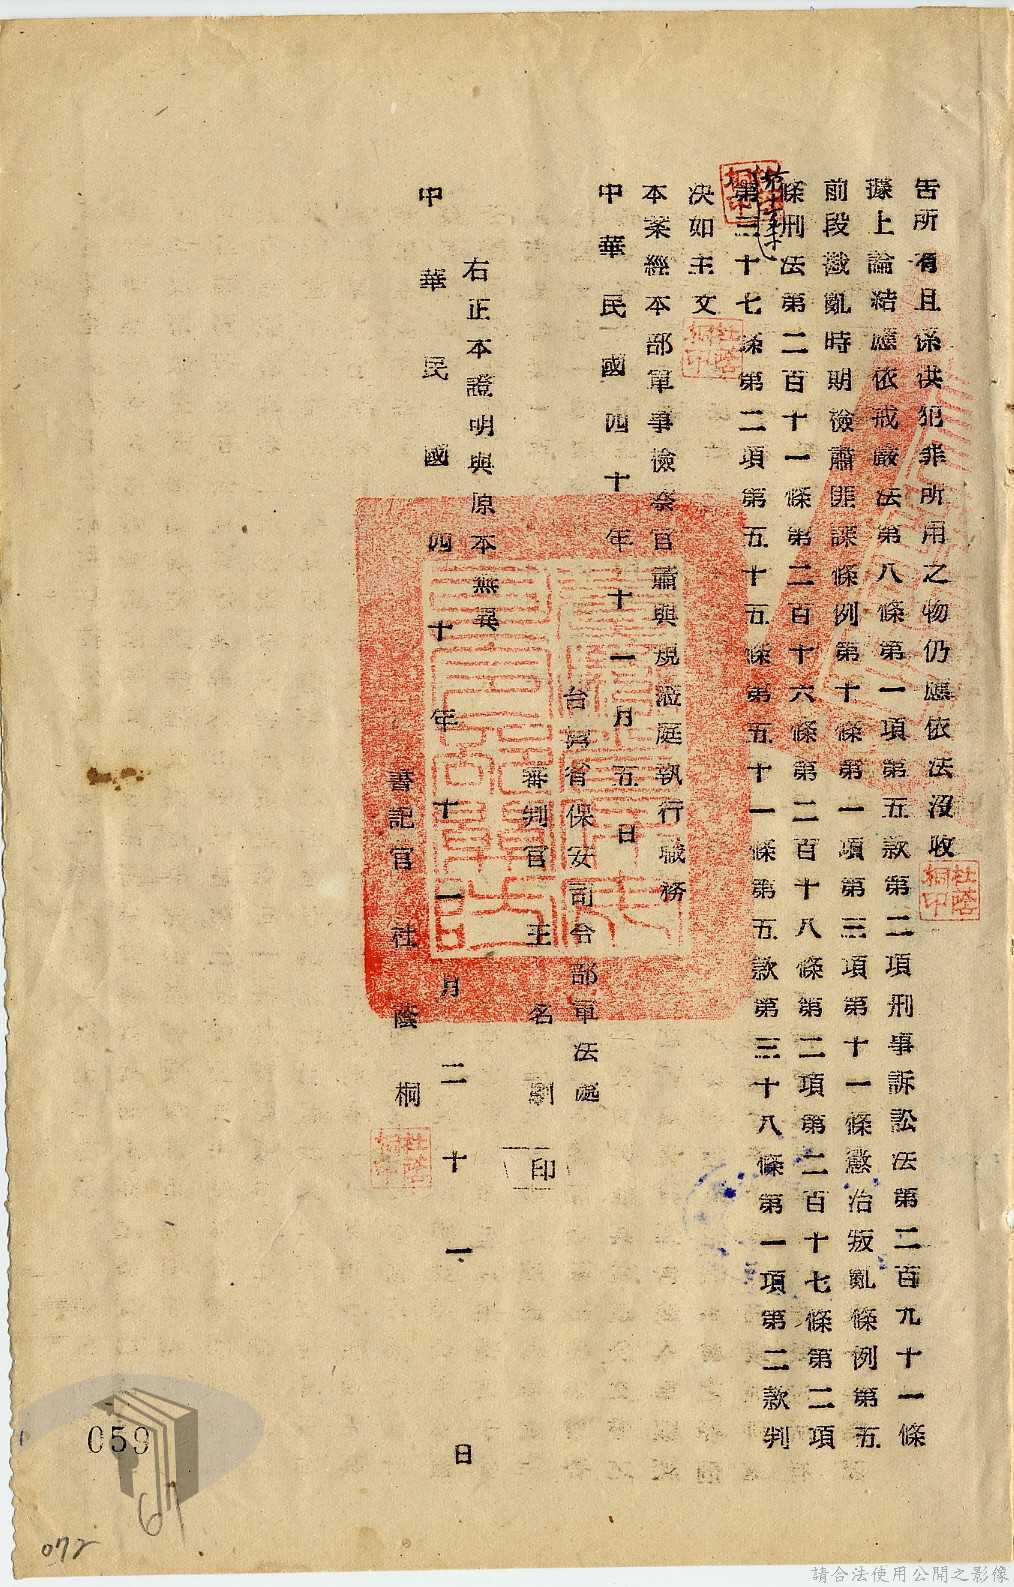 告所有且係供犯罪所用之物仍應依法沒收
據上論結應依戒嚴法第八條第一項第五款第二項刑事訴訟法第二百九十一條
前段戡亂時期檢肅匪諜條例第十條第一項第三項第十一條懲治叛亂條例第五
條刑法第二百十一條第二百十六條第二百十八條第二項第二百十七條第二項
第三十七條第二項第五十五條第五十一條第五款第三十八條第一項第二款判
決如主文
本案經本部軍事檢察官蕭與規蒞庭執行職務
中華民國四十年十一月五日
台灣省保安司令部軍法處
審判官 王名馴 印
右正本證明與原本無異
中華民國四十年十一月二十一日
書記官 杜蔭桐
杜蔭桐印
杜蔭桐印
杜蔭桐印
059
67
072
請合法使用公開之影像